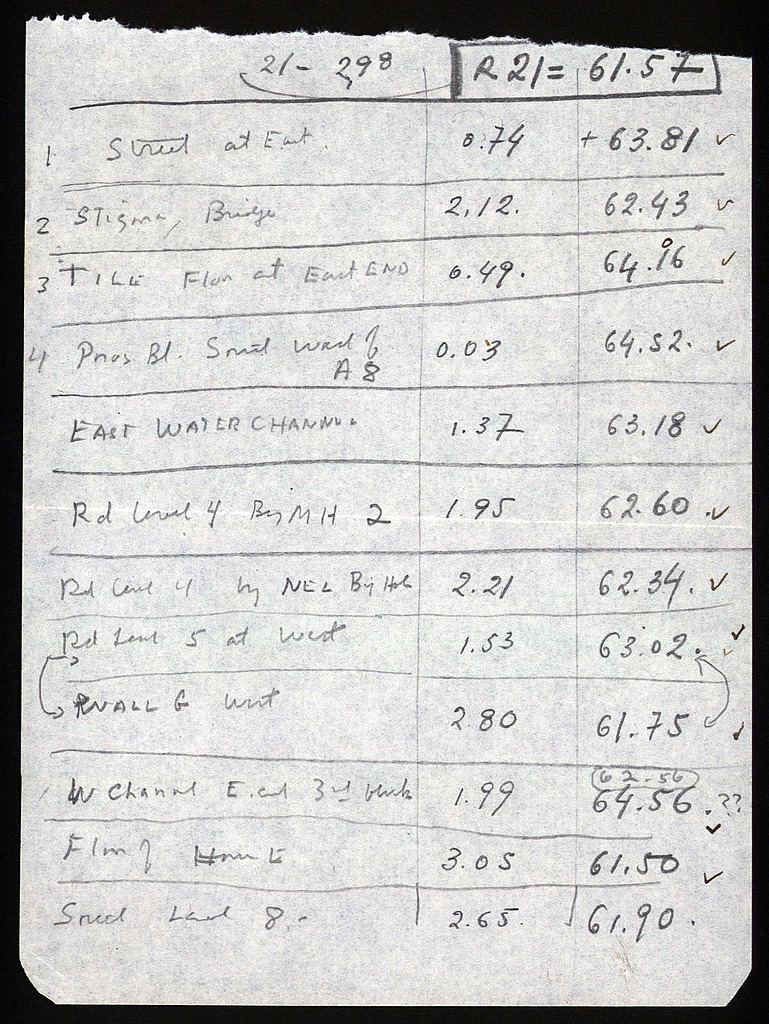 21 - 298 R 21 = 61.57
1 Street at East. 0.74 + 63.81 ✓
2 STigma, Bridge 2.12. 62.43 ✓
3 TILE Floor at East END 0.49. 64.06 ✓
4 Bl. Street West of 0.03 64.52. ✓
A 8
EAST WATER CHANNEL 1.37 63.18 ✓
Rd Level 4 By MH 2 1.95 62.60 . ✓
Rd Level 4 by 2.21 62.34. ✓
Rd Level 5 at West 1.53 63.02. ✓
WALL G West 2.80 61.75 ✓
62.56
W Channel E. end 3rd block 1.99 64.56 . ??
Floor of House E 3.05 61.50 ✓
Street Level 8.- 2.65. 61.90 .